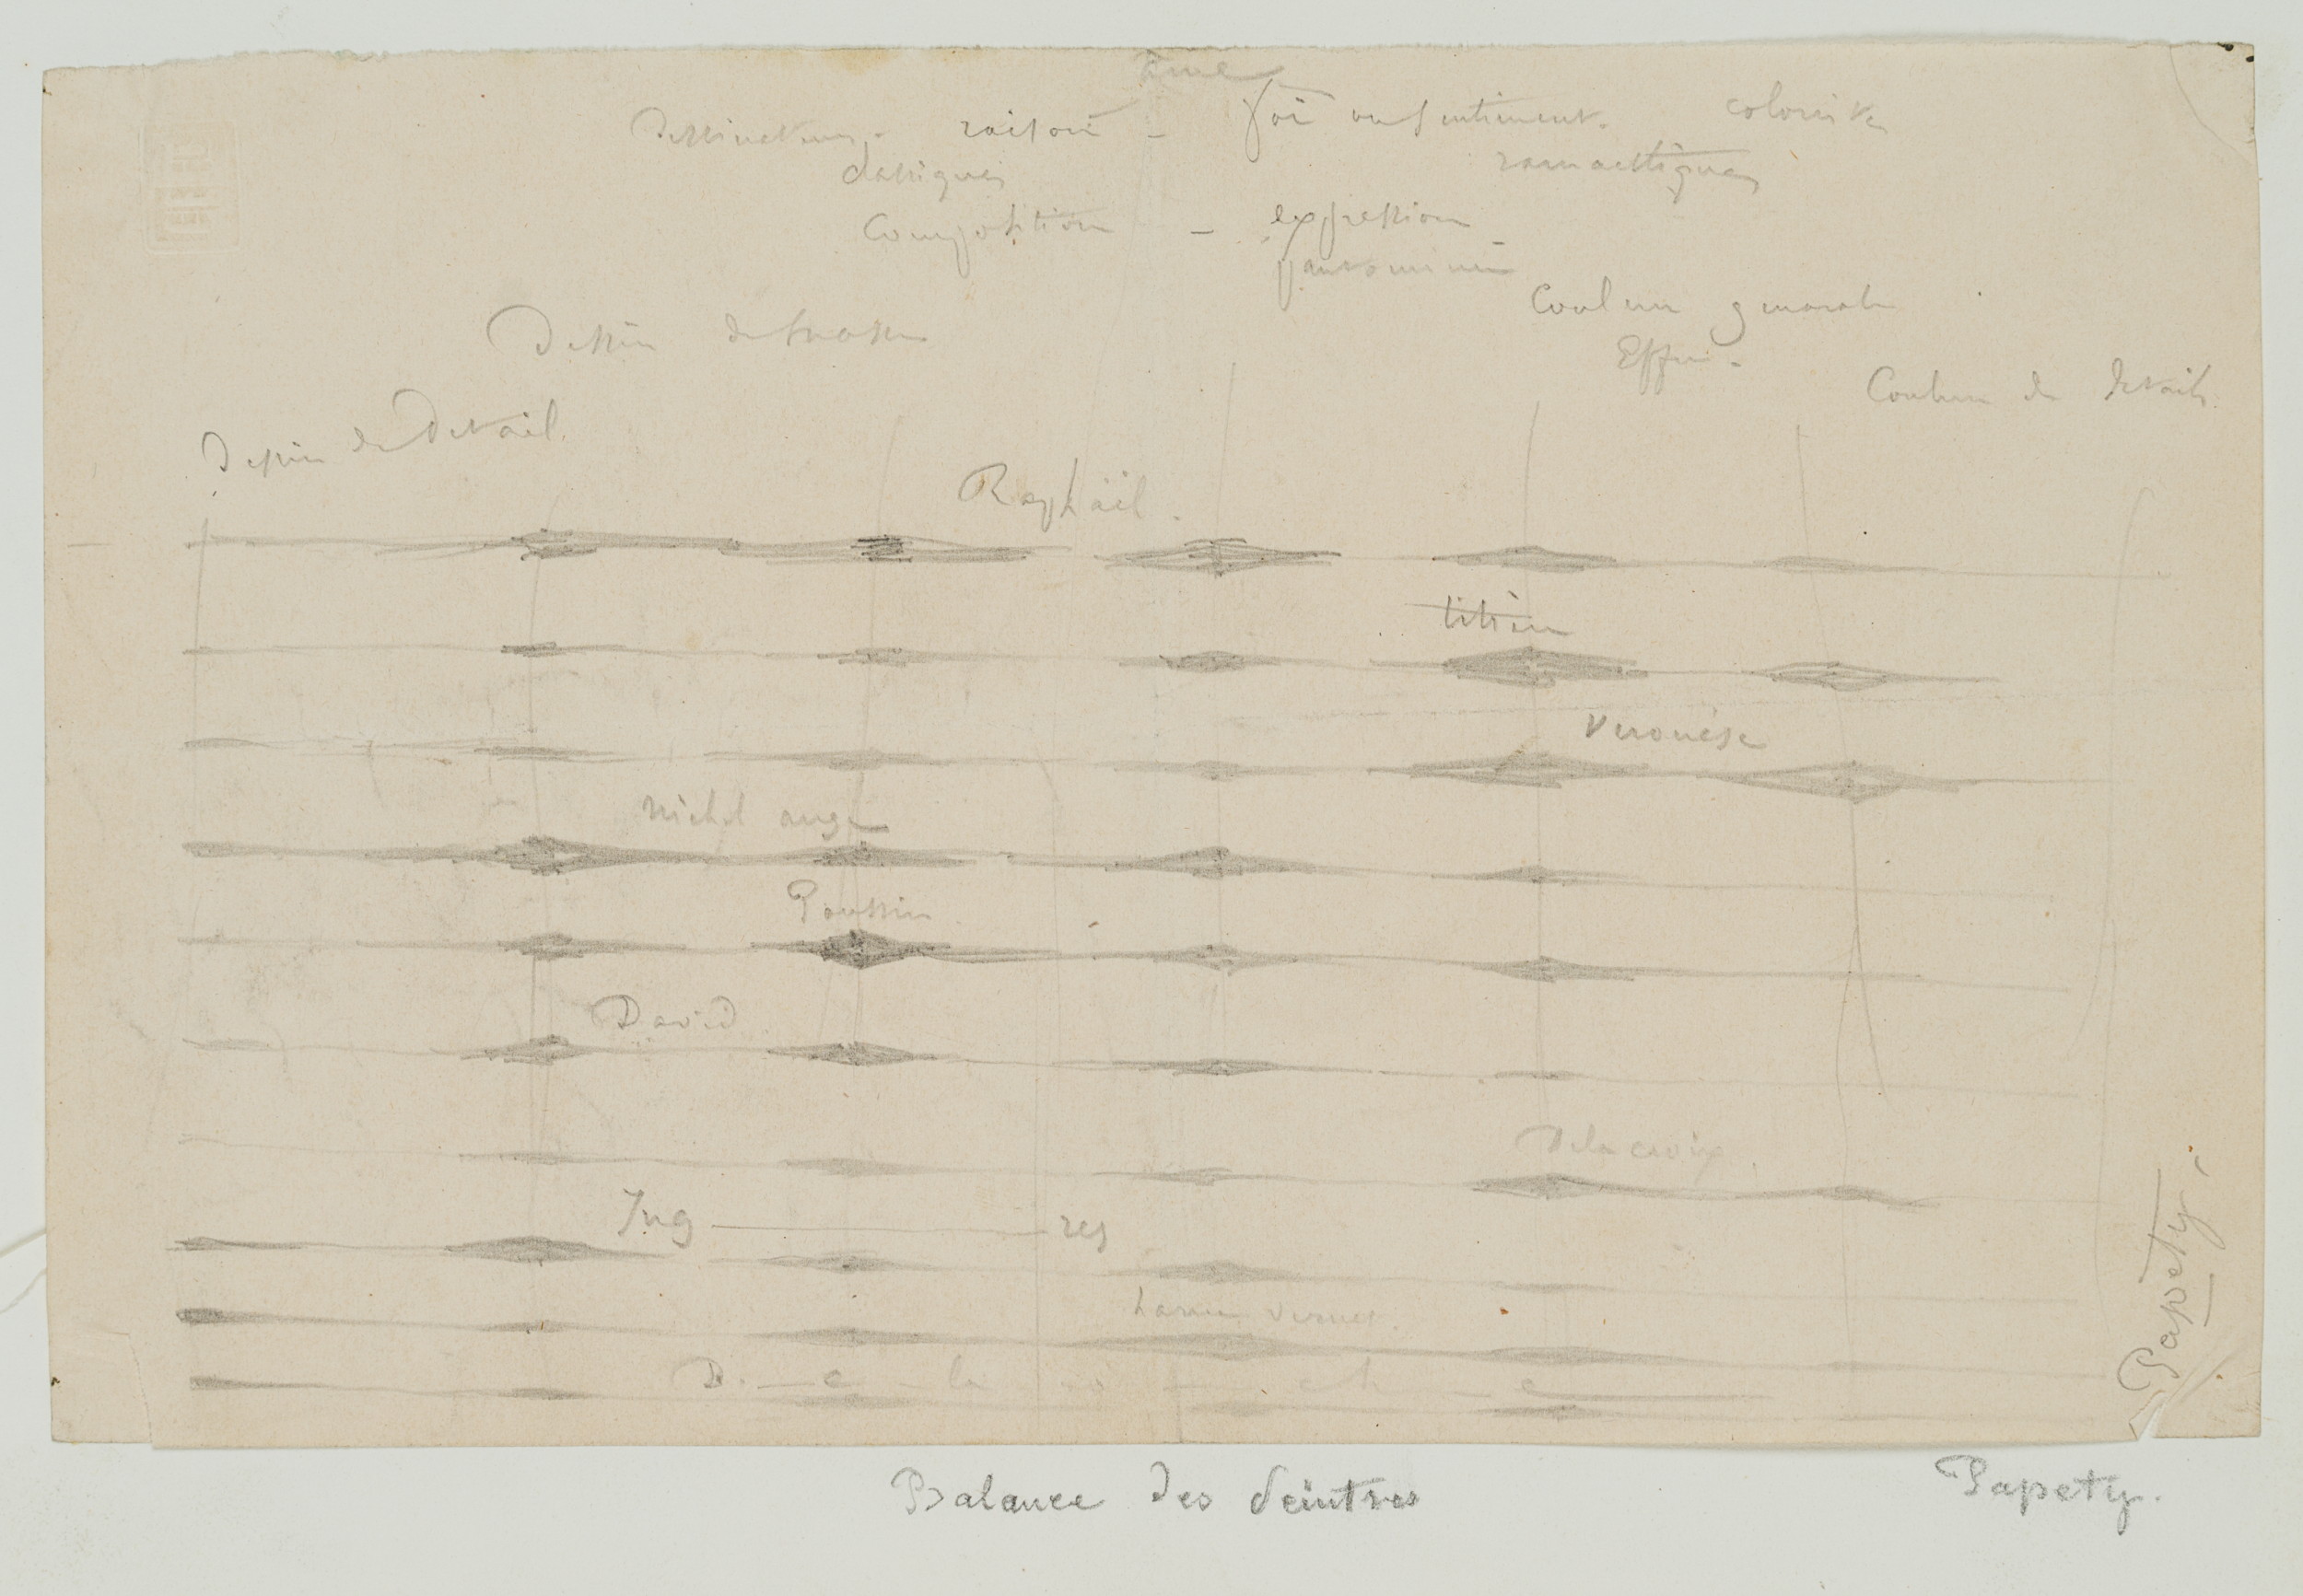 âme
Dessinateurs - raison - foi ou sentiment. coloristes
classiques romantiques
Composition - expression
pantomime
Dessin de masses
Couleur generale
Effet.
Couleur de details.
Dessin de Detail.
Raphäel.
titien
Veronèse
Michel ange
Poussin
David
Delacroix.
Ing res
horace Vernet.
D e la ro ch e
Papety.
Balance des Peintres
Papety.